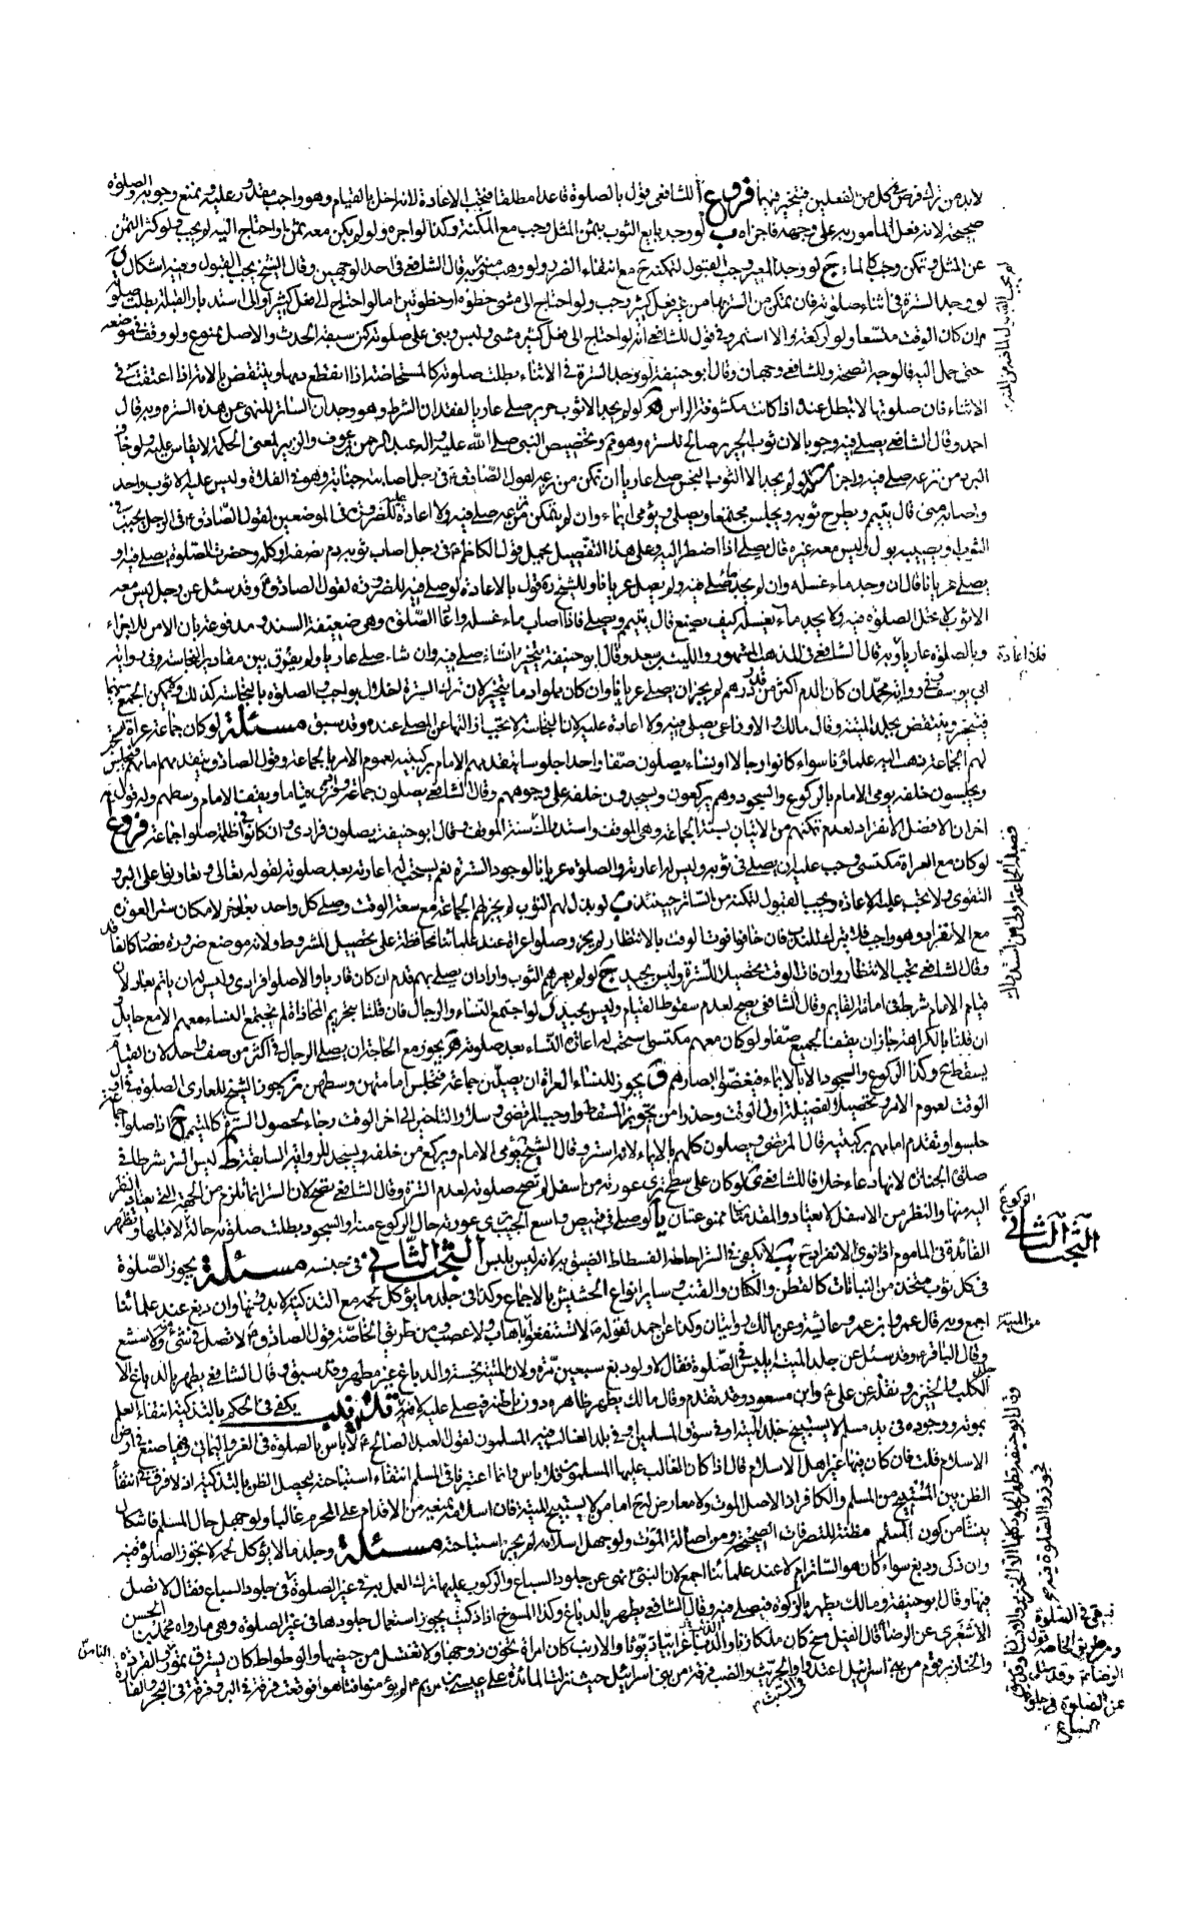 لابد من ترك فرض في كل من الفعلين فتخير فيهما فروع أ للشافعي قول بالصلوة قاعدا مطلقا فتجب الاعادة لانه اخل بالقيام وهو واجب مقدور عليه ويمنع وجوبه والصلوة
صحيحة لانه فعل المأمور به على وجهه فاجزأه ب لو وجد بايع الثوب بثمن المثل وجب مع المكنة وكذا لو اجره ولو لم يكن معه ثمن او احتاج اليه لم يجب ولو كثر الثمن
عن المثل وتمكن وجب كالماء ج لو وجد المعير وجب القبول لتمكنه ح مع انتفاء الضرر ولو وهب منه وبه قال الشافعي في احد الوجهين وقال الشيخ يجب القبول وفيه اشكال
لو وجد السترة في أثناء صلوته فان تمكن من الستر بها من غير فعل كثير وجب ولو احتاج الى مشي خطوة او خطوتين اما لو احتاج الى فعل كثير او الى استدبار القبلة بطلت صلوته
ان كان الوقت متسعا ولو لركعة والا استمر وفي قول للشافعي انه لو احتاج الى فعل كثير مشى ولبس وبنى على صلوته كمن سبقه الحدث والاصل ممنوع ولو وقف في موضعه
حتى حمل اليه فالوجه الصحة وللشافعي وجهان وقال ابو حنيفة لو وجد السترة في الاثناء بطلت صلوته كالمستحاضة اذا انقطع دمها وينتقض بالامة اذا اعتقت في
الاثناء فان صلوتها لا تبطل عنده اذا كانت مكشوفة الراس لو لم يجد الا ثوب حرير صلى عاريا لفقدان الشرط وهو وجدان الساتر للنهي عن هذه السترة وبه قال
احمد وقال الشافعي يصلي فيه وجوبا لان ثوب الحرير صالح للسترة وهو مم وتخصيص النبي صلى الله عليه وآله عبد الرحمن بن عوف والزبير لمعنى الحكة لا يقاس عليه ولو خاف
البرد من نزعه صلى فيه واجزأ و لو لم يجد الا الثوب النجس صلى عاريا ان تمكن من نزعه لقول الصادق ع في رجل اصابته جنابة وهو في الفلاة وليس عليه الا ثوب واحد
واصابه مني قال يتيمم ويطرح ثوبه ويجلس مجتمعا ويصلي ويؤمي ايماء وان لم يتمكن من نزعه صلى فيه ولا اعادة عليه للضرورة في الموضعين لقول الصادق ع في الرجل يجنب في
الثوب او يصيبه بول وليس معه غيره قال يصلي اذا اضطر اليه وعلى هذا التفصيل يحمل قول الكاظم ع في رجل اصاب ثوبه دم نصفه او كله وحضرت الصلوة يصلي فيه او
يصلي عريانا قال ان وجد ماء غسله وان لم يجد ماء صلى فيه ولم يصل عريانا وللشيخ ره قول بالاعادة لو صلى فيه للضرورة لقول الصادق ع وقد سئل عن رجل ليس معه
الا ثوب لا تحل الصلوة فيه ولا يجد ماء يغسله كيف يصنع قال يتيمم ويصلي فاذا اصاب ماء غسله واعاد الصلوة وهي ضعيفة السند ومدفوعة بان الامر للاجزاء
وبالصلوة عاريا وبه قال الشافعي في المذهب المشهور والليث بن سعد وقال ابو حنيفة يتخير ان شاء صلى فيه وان شاء صلى عاريا ولم يفرق بين مقادير النجاسة وفي رواية
ابي يوسف وفي رواية محمد ان كان الدم اكثر من قدر درهم لم يجز ان يصلي عريانا وان كان مملوا دما يتخير لان ترك السترة اخلال بواجب والصلوة بالنجاسة كذلك ولا يمكن الجمع بينهما
فيتخير وينتقض بجلد الميتة وقال مالك والاوزاعي يصلي فيه ولا اعادة عليه لان النجاسة لا تجب ازالتها عن المصلي عنده وقد سبق مسئلة لو كان جماعة عراة استحب
لهم الجماعة ذهب اليه علماؤنا سواء كانوا رجالا او نساء يصلون صفا واحدا جلوسا يتقدمهم الامام بركبتيه لعموم الامر بالجماعة وقول الصادق ع يتقدمهم امامهم فيجلس
ويجلسون خلفه يومي الامام بالركوع والسجود وهم يركعون ويسجدون خلفه على وجوههم وقال الشافعي يصلون جماعة وفرادى قياما ويقف الامام وسطهم وله قول
اخر ان الافضل الانفراد لعدم تمكنهم من الاتيان بسنة الجماعة وهي الموقف واستدراك سنة الموقف وقال ابو حنيفة يصلون فرادى وان كانوا في ظلمة صلوا جماعة فروع
لو كان مع العراة مكتسى وجب عليه ان يصلي في ثوبه وليس له اعارته والصلوة عريانا لوجود السترة نعم يستحب له اعارته بعد صلوته لقوله تعالى وتعاونوا على البر و
التقوى ولا تجب عليه الاعادة ويجب القبول لتمكنه من الساتر حينئذ ب لو بذل لهم الثوب لم يجز لهم الجماعة مع سعة الوقت وصلى كل واحد بعد اخر لامكان ستر العورة
مع الانفراد وهو واجب فلا يترك للندب فان خافوا فوت الوقت بالانتظار لم يجز وصلوا عراة عند علمائنا محافظة على تحصيل المشروط ولانه موضع ضرورة فصار كالفاقد
وقال الشافعي يجب الانتظار وان فات الوقت تحصيلا للسترة وليس بجيد ج لو لم يعرهم الثوب واراد ان يصلي بهم قدم ان كان قاريا والا صلوا فرادى وليس له ان ياتم بعار لان
قيام الامام شرط في امامته لقايم وقال الشافعي يصح لعدم سقوط القيام وليس بجيد د لو اجتمع النساء والرجال فان قلنا بتحريم المحاذاة لم يجتمع النساء معهم الا مع حايل
ان قلنا بالكراهة جاز ان يقف الجميع صفا ولو كان معهم مكتسى استحب له اعارة النساء بعد صلوته يجوز مع الحاجة ان يصلي الرجال في اكثر من صف واحد لان القيام
يسقط ح وكذا الركوع والسجود الا بالايماء فيغضوا ابصارهم و يجوز للنساء العراة ان يصلين جماعة فتجلس امامتهن وسطهن جوز الشيخ للعاري الصلوة في اول
الوقت لعموم الامر وتحصيلا لفضيلة اول الوقت وحذرا من تجويز السقط واوجب المرتضى وسلار التاخير الى اخر الوقت رجاء لحصول السترة كالمتيمم ح اذا صلوا جماعة
جلسوا ويقدم امامهم بركبتيه قال المرتضى ويصلون كلهم بالايماء لانه استر وقال الشيخ يومي الامام ويركع من خلفه ويسجد للرواية السابقة ط ليس الستر شرطا في
صلوة الجنازة لانها دعاء خلافا للشافعي ي لو كان على سطح ترى عورته من اسفل لم تصح صلوته لعدم السترة وقال الشافعي تصح لان الستر انما تلزم من الجهة التي يعتاد النظر
اليه منها والنظر من الاسفل لا يعتاد والمقدمتان ممنوعتان يا لو صلى في قميص واسع الجيب ترى عورته حال الركوع منه او السجود بطلت صلوته حالته لا قبلها وتظهر
الفائدة في المأموم اذا نوى الانفراد ح يب لا يكفي في الستر احاطة الفسطاط الضيق به لانه ليس بلبس البحث الثاني في جنسه مسئلة يجوز الصلوة
في كل ثوب متخذ من النباتات كالقطن والكتان والقنب وساير انواع الحشيش بالاجماع وكذا في جلد ما يؤكل لحمه مع التذكية لا بدونها وان دبغ عند علمائنا
اجمع وبه قال عمر وابن عمر وعائشة وعن مالك روايتان وكذا عن احمد لقوله ع لا تنتفعوا من الميتة باهاب ولا عصب ومن طريق الخاصة قول الصادق ع لا تصل في شيء منه ولا شسع
وقال الباقر ع وقد سئل عن جلد الميتة ايلبس في الصلوة فقال لا ولو دبغ سبعين مرة ولان الميتة نجسة والدباغ غير مطهر وقد سبق وقال الشافعي يطهر بالدباغ الا جلد
الكلب والخنزير ونقله عن علي ع وابن مسعود وقد تقدم وقال مالك يطهر ظاهره دون باطنه فيصلي عليه لا فيه تذنيب يكفي في الحكم بالتذكية انتفاء العلم
بموته ووجوده في يد مسلم لا يستبيح جلد الميتة او في سوق المسلمين او في بلد الغالب فيه المسلمون لقول العبد الصالح ع لا باس بالصلوة في الفرو اليماني وفيما صنع في ارض
الاسلام قلت فان كان فيها غير اهل الاسلام قال اذا كان الغالب عليها المسلمون فلا باس وانما اعتبرنا في المسلم انتفاء استباحته ليحصل الظن بالتذكية اذ لا فرق في انتفاء
الظن بين المستبيح من المسلم والكافر اذ الاصل الموت ولا معارض له ح اما من لا يستبيح الميتة فان اسلامه يمنعه من الاقدام على المحرم غالبا ولو جهل حال المسلم فاشكال
ينشأ من كون المسلم مظنة للتصرفات الصحيحة ومن اصالة الموت ولو جهل اسلامه لم يجز استباحته مسئلة وجلد ما لا يؤكل لحمه لا يجوز الصلوة فيه
وان ذكي ودبغ سواء كان هو الساتر ام لا عند علمائنا اجمع لان النبي ص نهى عن جلود السباع والركوب عليها ترك العمل به في غير الصلوة في جلود السباع فقال لا تصل
فيها وقال ابو حنيفة ومالك يطهر بالزكوة فيصلي فيه وقال الشافعي يطهر بالدباغ وكذا المسوخ اذا ذكيت يجوز استعمال جلودها في غير الصلوة وهي ما رواه محمد بن الحسن
الاشعري عن الرضا ع قال الفيل مسخ كان ملكا زناء والذئب كان اعرابيا ديوثا والارنب كان امراة تخون زوجها ولا تغتسل من حيضها والوطواط كان يسرق تمور الناس والقردة
والخنازير قوم من بني اسرائيل اعتدوا في السبت والجريث والضب فرقة من بني اسرائيل حيث نزلت المائدة على عيسى بن مريم ع لم يؤمنوا فتاهوا فوقعت فرقة في البر وفرقة في البحر والفارة
لم يجب القبول لما فيه من المنة
فلا اعادة
فضيلة الجماعة اولى من استدراك
البحث الثاني
من الميتة
نهى في الصلوة
ومن طريق الخاصة قول
الرضا ع وقد سئل
عن الصلوة في جلود
السباع